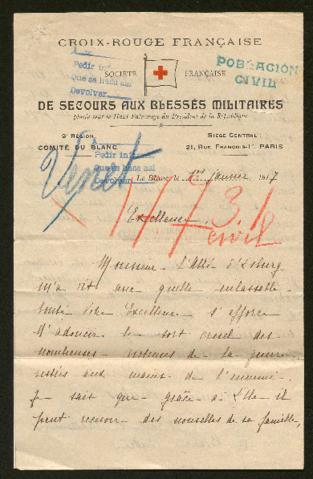 CROIX-ROUGE FRANÇAISE
Pedir inf
Que se haga así
Devolver
SOCIÉTÉ FRANÇAISE
POBLACIÓN
CIVIL
DE SECOURS AUX BLESSÉS MILITAIRES
placée sous le Haut Patronage du Président de la République
9e RÉGION
COMITÉ DU BLANC
SIÈGE CENTRAL:
21, RUE FRANÇOIS-1er PARIS
Pedir inf
Que se haga así
Devolver
Le Blanc, le 1er janvier 1917
Excellence,
civil
Monsieur l'Abbé
m'a dit avec quelle inlassable
bonté Votre Excellence s'efforce
d'adoucir le sort cruel des
nombreuses victimes de la guerre
restées aux mains de l'ennemi.
Je sais que grâce à Elle il
peut recevoir des nouvelles de sa famille,